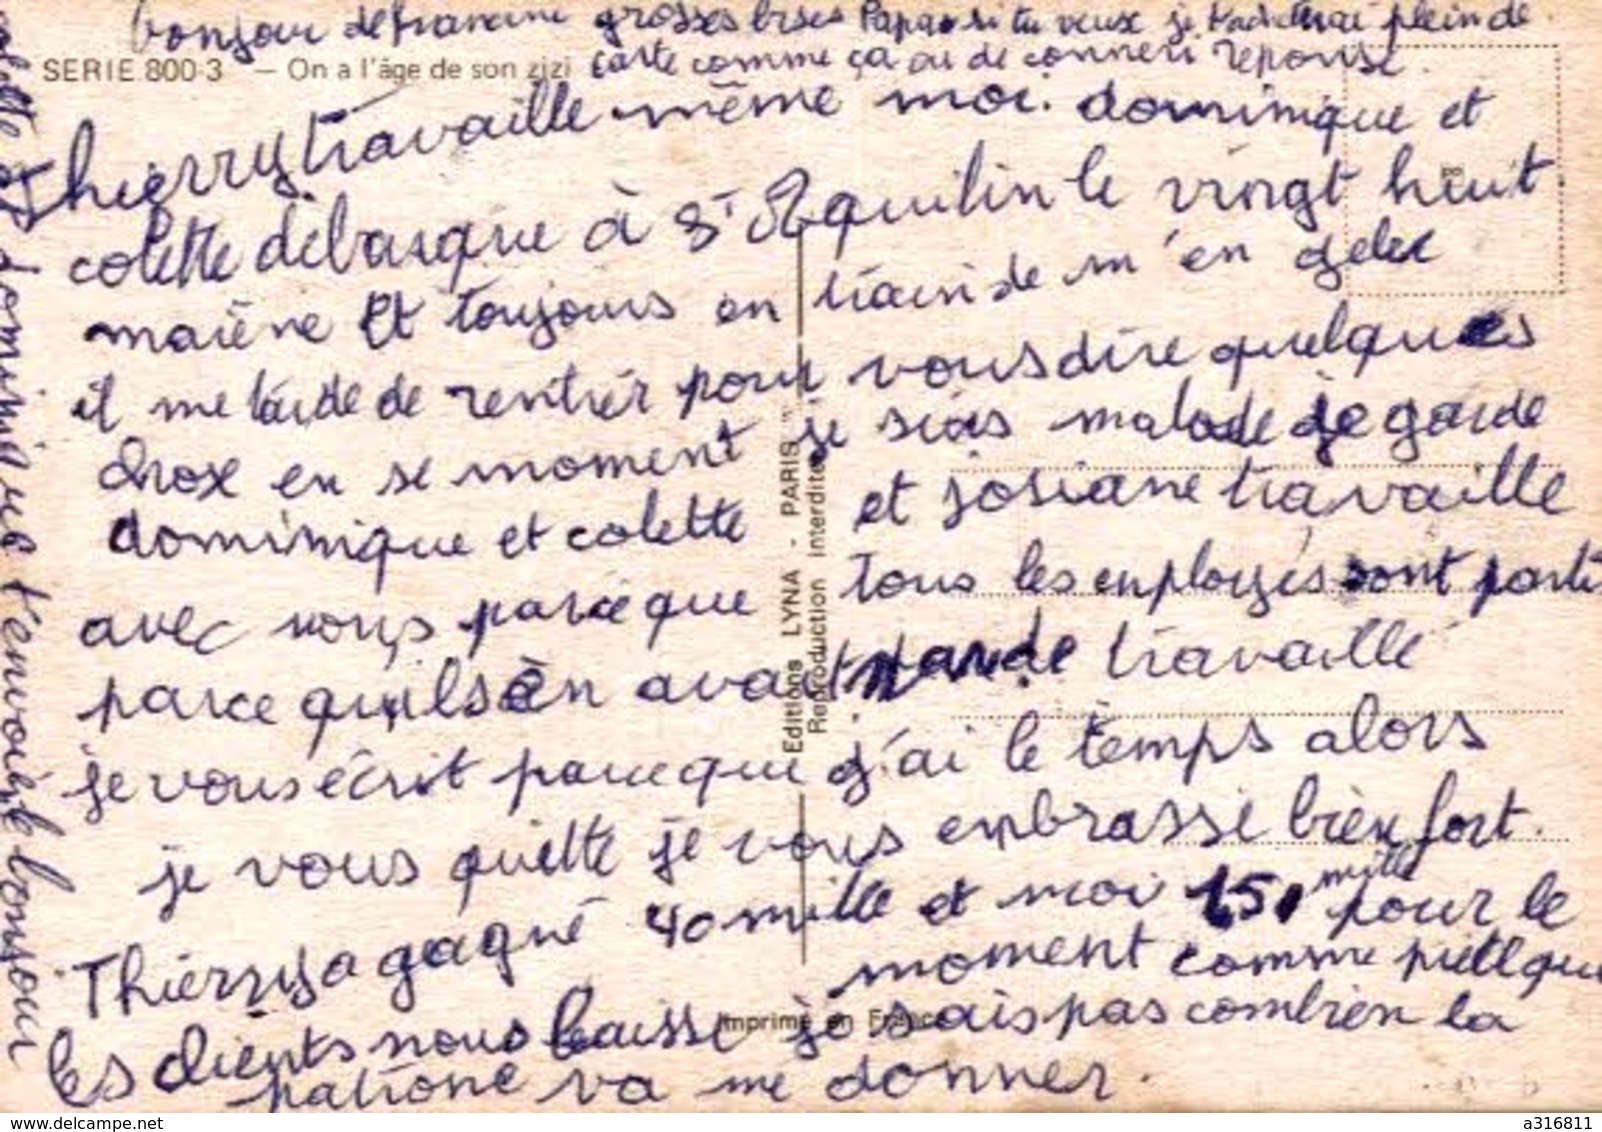 bonjour de francine grosses bises Papa si tu veux je t'acheterai plein de
carte comme ça ou de conneri reponse.
SERIE 800-3 — On a l'âge de son zizi
Thierry travaille même moi. dominique et
colette débarque à St Aquilin le vingt huit
et toujours en train de m'en geler
il me tarde de rentrer pour vous dire quelques
chox en se moment je suis malade je garde
dominique et colette et josiane travaille
avec nous parce que tous les employés sont parti
parce qu'ils en avait travaille
je vous écrit parce que j'ai le temps alors
je vous quitte je vous embrasse bien fort.
Thierry a gagné 40 mille et moi 150 mille pour le
moment comme
les clients nous laisse je sais pas combien la
patrone va me donner.
colette et dominique t'envoie le bonjour
Editions LYNA - PARIS
Reproduction interdite
Imprimé en France
www.delcampe.net
a316811